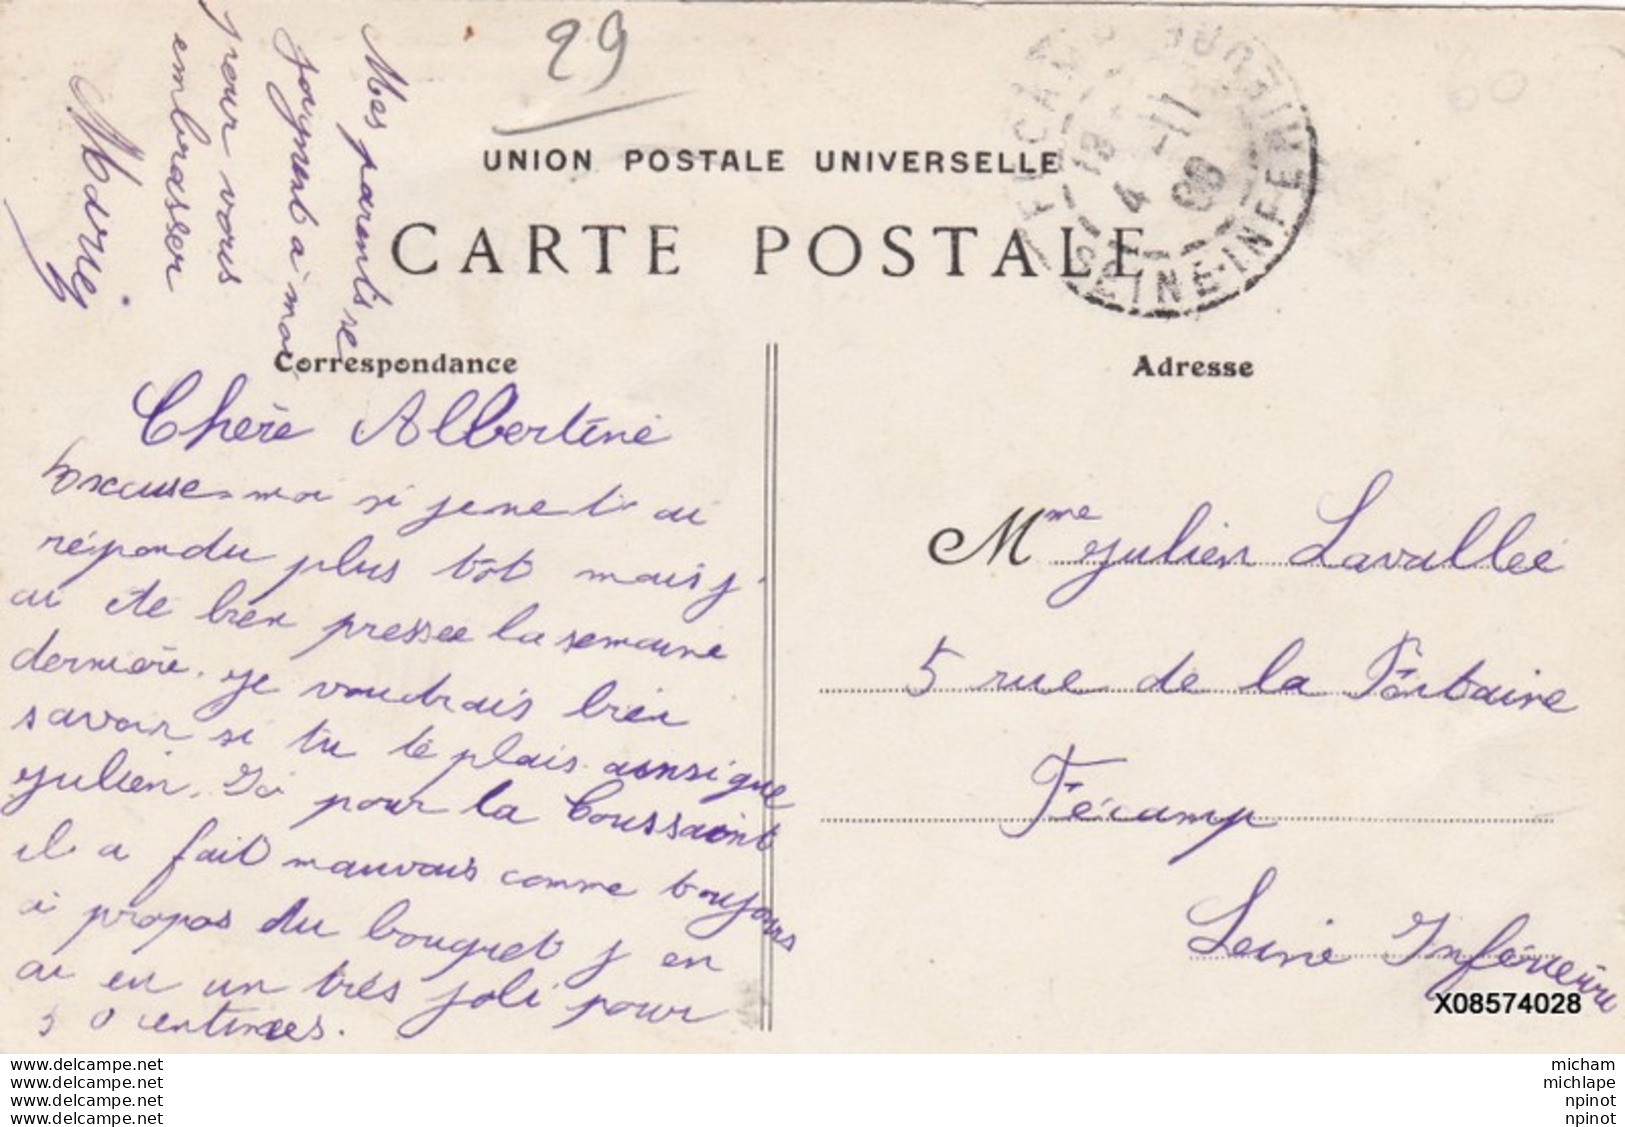 29
UNION POSTALE UNIVERSELLE
CARTE POSTALE
Correspondance
Adresse
FECAMP
SEINE-INFERIEURE
4 -11
Chère Albertine
Excuse-moi si je ne t'ai
répondu plus tôt mais j'
ai été bien pressée la semaine
dernière. je voudrais bien
savoir si tu te plais ainsi que
julien. Ici pour la Toussaint
il a fait mauvais comme toujours
à propos du bouquet j'en
ai eu un très joli pour
50 centimes.
Mes parents se
joignent à moi
pour vous
embrasser
Marie
Mme julien Lavallée
5 rue de la Fontaine
Fécamp
Seine Inférieure
X08574028
www.delcampe.net
www.delcampe.net
www.delcampe.net
www.delcampe.net
micham
michlape
npinot
npinot